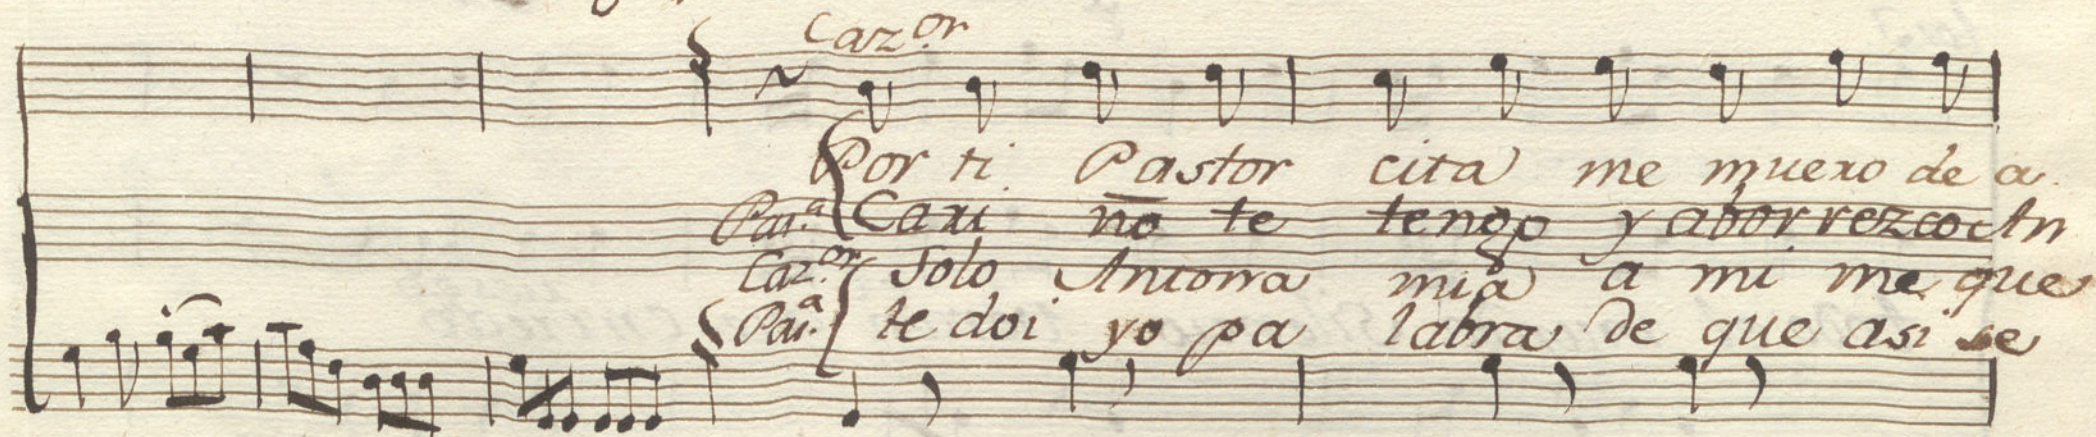 Caz.or
Por ti Pastor cita me muero de a
Pai.a Cari ño te tengo y aborrezco An
Caz.or Solo Antona mia a mi me que
Pai.a te doi yo pa labra de que asi se